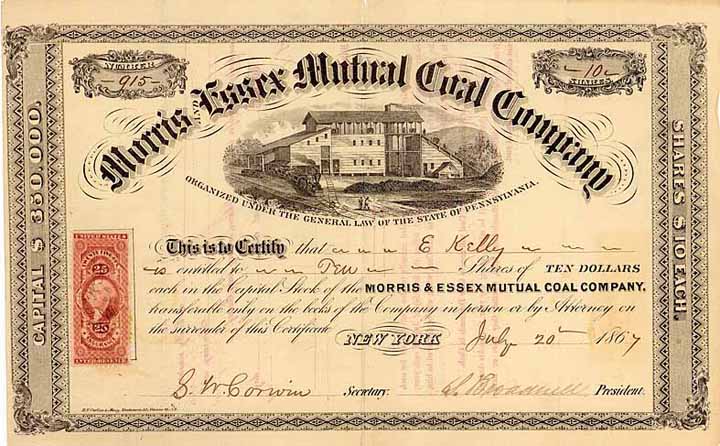 NUMBER
915
10
SHARES
Morris AND Essex Mutual Coal Company
ORGANIZED UNDER THE GENERAL LAW OF THE STATE OF PENNSYLVANIA.
CAPITAL $350,000.
SHARES $10 EACH.
This is to Certify that E Kelly
is entitled to Ten Shares of TEN DOLLARS
each in the Capital Stock of the MORRIS & ESSEX MUTUAL COAL COMPANY,
transferable only on the books of the Company in person or by Attorney on
the surrender of this Certificate
NEW YORK July 20 1867
UNITED STATES
25 25
S. W. Corwin Secretary. President.